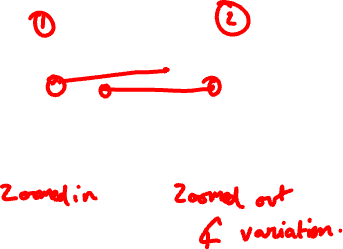 1 2
Zoomed in Zoomed out
& variation.